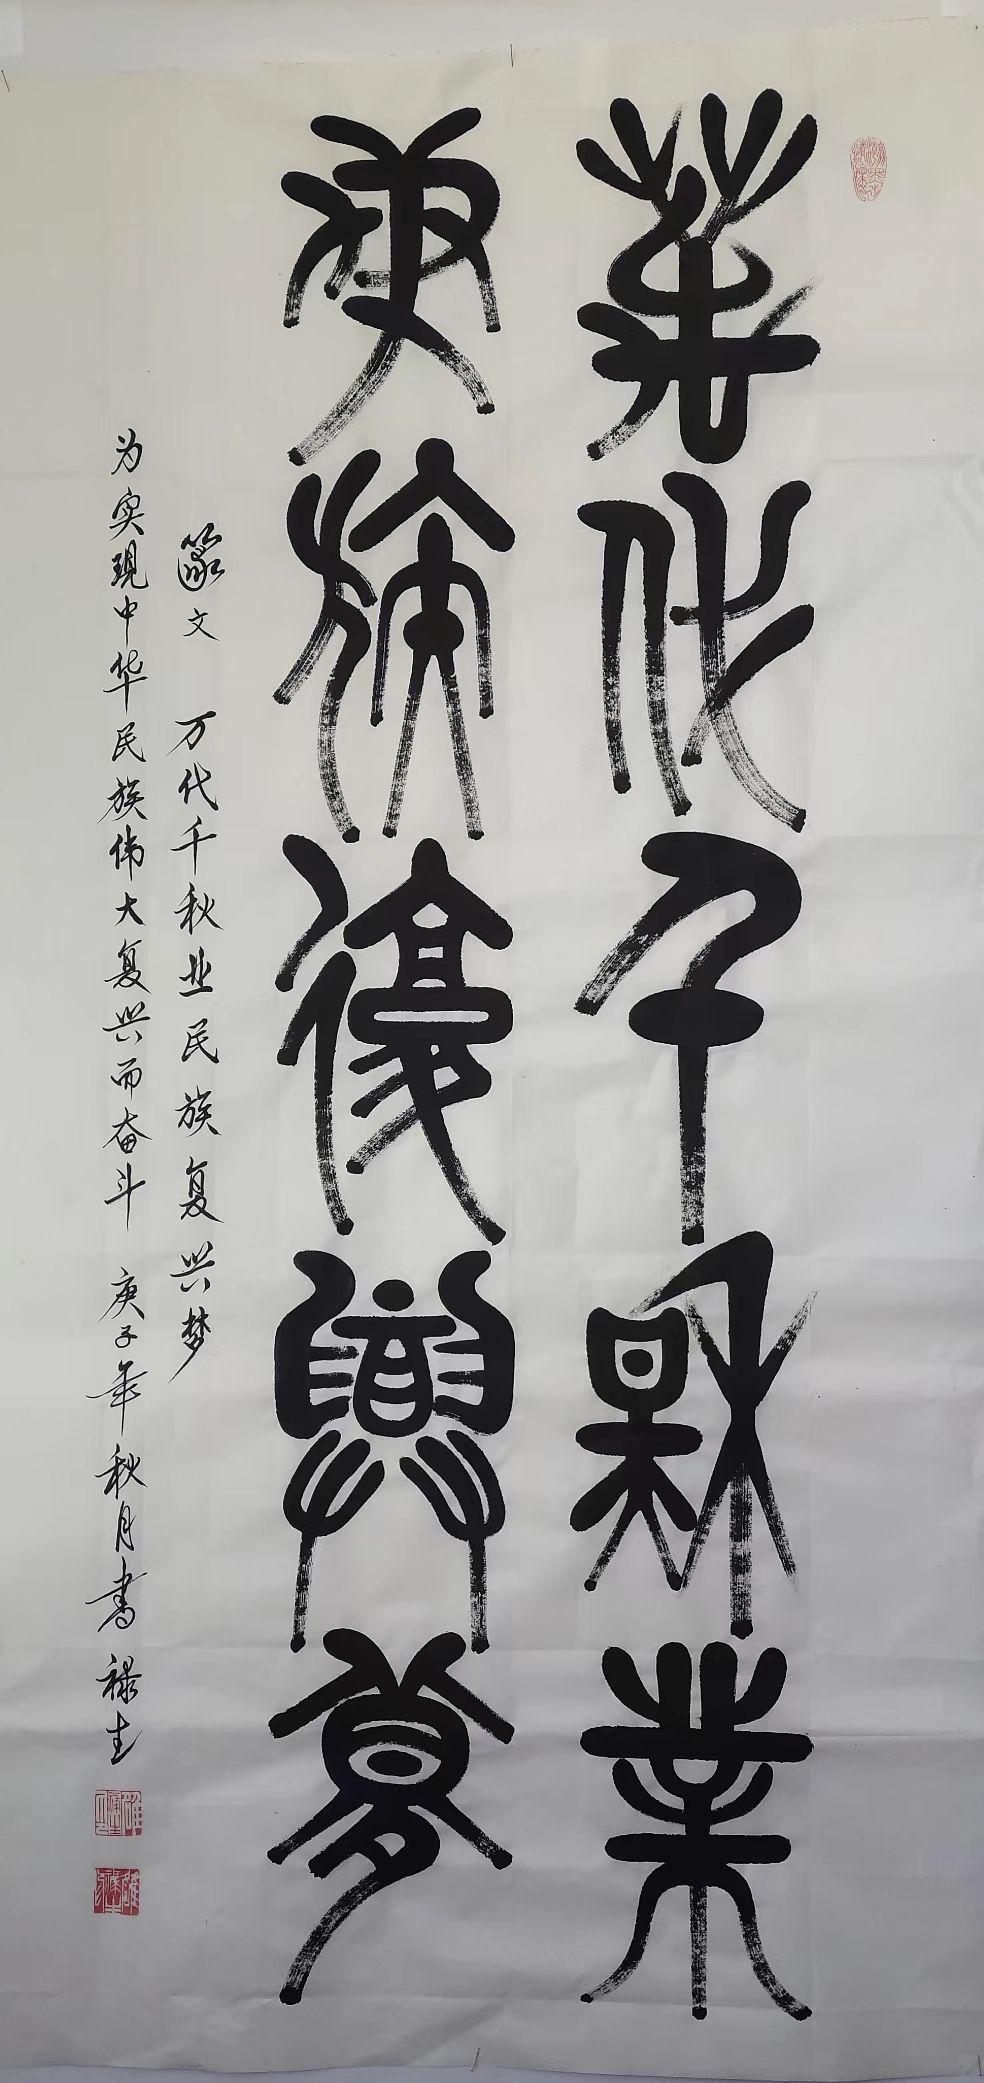 萬代千秋業
民族復興夢
篆文 万代千秋业民族复兴梦
为实現中华民族伟大复兴而奋斗 庚子年秋月書 禄生